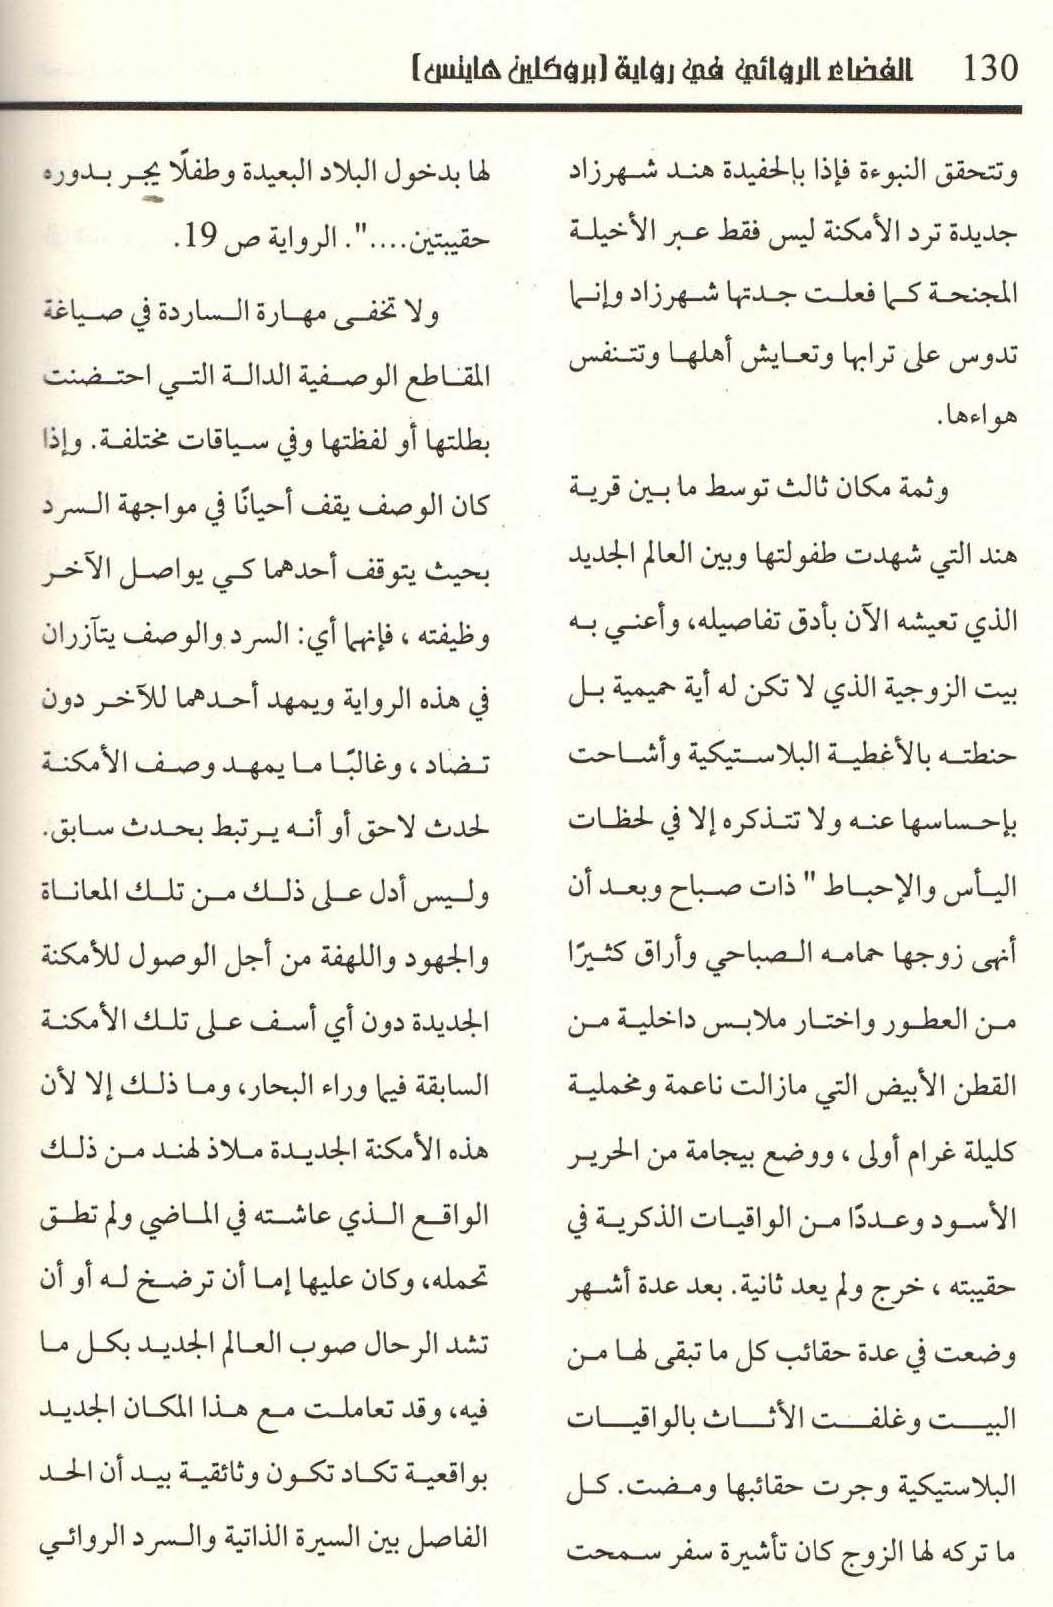 130 الفضاء الروائي في رواية [بروكلين هايتس]
وتتحقق النبوءة فإذا بالحفيدة هند شهرزاد
جديدة ترد الأمكنة ليس فقط عبر الأخيلة
المجنحة كما فعلت جدتها شهرزاد وإنما
تدوس على ترابها وتعايش أهلها وتتنفس
هواءها.
وثمة مكان ثالث توسط ما بين قرية
هند التي شهدت طفولتها وبين العالم الجديد
الذي تعيشه الآن بأدق تفاصيله، وأعني به
بيت الزوجية الذي لا تكن له أية حميمية بل
حنطته بالأغطية البلاستيكية وأشاحت
بإحساسها عنه ولا تتذكره إلا في لحظات
اليأس والإحباط " ذات صباح وبعد أن
أنهى زوجها حمامه الصباحي وأراق كثيرًا
من العطور واختار ملابس داخلية من
القطن الأبيض التي مازالت ناعمة ومخملية
كليلة غرام أولى ، ووضع بيجامة من الحرير
الأسود وعددًا من الواقيات الذكرية في
حقيبته ، خرج ولم يعد ثانية. بعد عدة أشهر
وضعت في عدة حقائب كل ما تبقى لها من
البيت وغلفت الأثاث بالواقيات
البلاستيكية وجرت حقائبها ومضت. كل
ما تركه لها الزوج كان تأشيرة سفر سمحت
لها بدخول البلاد البعيدة وطفلًا يجر بدوره
حقيبتين....". الرواية ص 19.
ولا تخفى مهارة الساردة في صياغة
المقاطع الوصفية الدالة التي احتضنت
بطلتها أو لفظتها وفي سياقات مختلفة. وإذا
كان الوصف يقف أحيانًا في مواجهة السرد
بحيث يتوقف أحدهما كي يواصل الآخر
وظيفته ، فإنهما أي: السرد والوصف يتآزران
في هذه الرواية ويمهد أحدهما للآخر دون
تضاد ، وغالبًا ما يمهد وصف الأمكنة
لحدث لاحق أو أنه يرتبط بحدث سابق.
وليس أدل على ذلك من تلك المعاناة
والجهود واللهفة من أجل الوصول للأمكنة
الجديدة دون أي أسف على تلك الأمكنة
السابقة فيما وراء البحار، وما ذلك إلا لأن
هذه الأمكنة الجديدة ملاذ لهند من ذلك
الواقع الذي عاشته في الماضي ولم تطق
تحمله، وكان عليها إما أن ترضخ له أو أن
تشد الرحال صوب العالم الجديد بكل ما
فيه، وقد تعاملت مع هذا المكان الجديد
بواقعية تكاد تكون وثائقية بيد أن الحد
الفاصل بين السيرة الذاتية والسرد الروائي